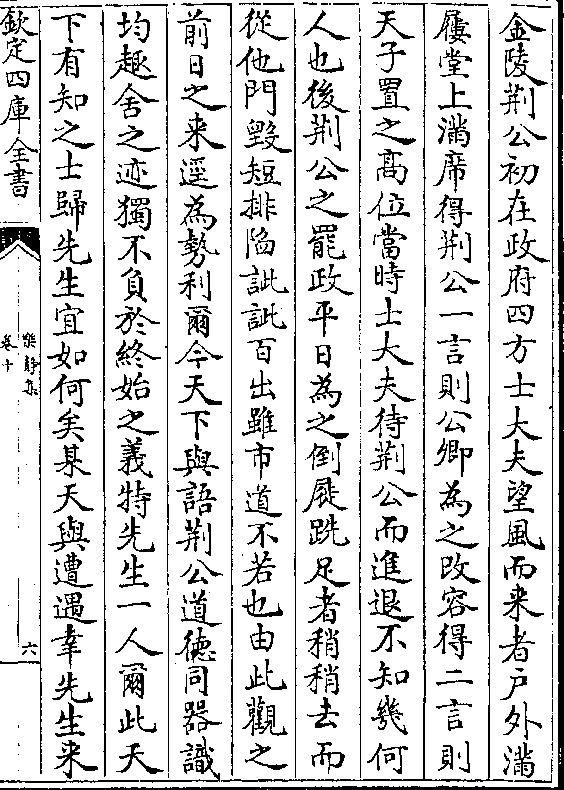 金陵荆公初在政府四方士大夫望風而来者户外滿
屨堂上滿席得荆公一言則公卿為之改容得二言則
天子置之髙位當時士大夫待荆公而進退不知幾何
人也後荆公之罷政平日為之倒屣跣足者稍稍去而
從他門毀短排陷訿訿百出雖市道不若也由此觀之
前日之来逕為勢利爾今天下與語荆公道徳同器識
均趣舍之迹獨不負於終始之義特先生一人爾此天
下有知之士歸先生宜如何矣某天與遭遇幸先生来
欽定四庫全書
樂靜集
卷十
六